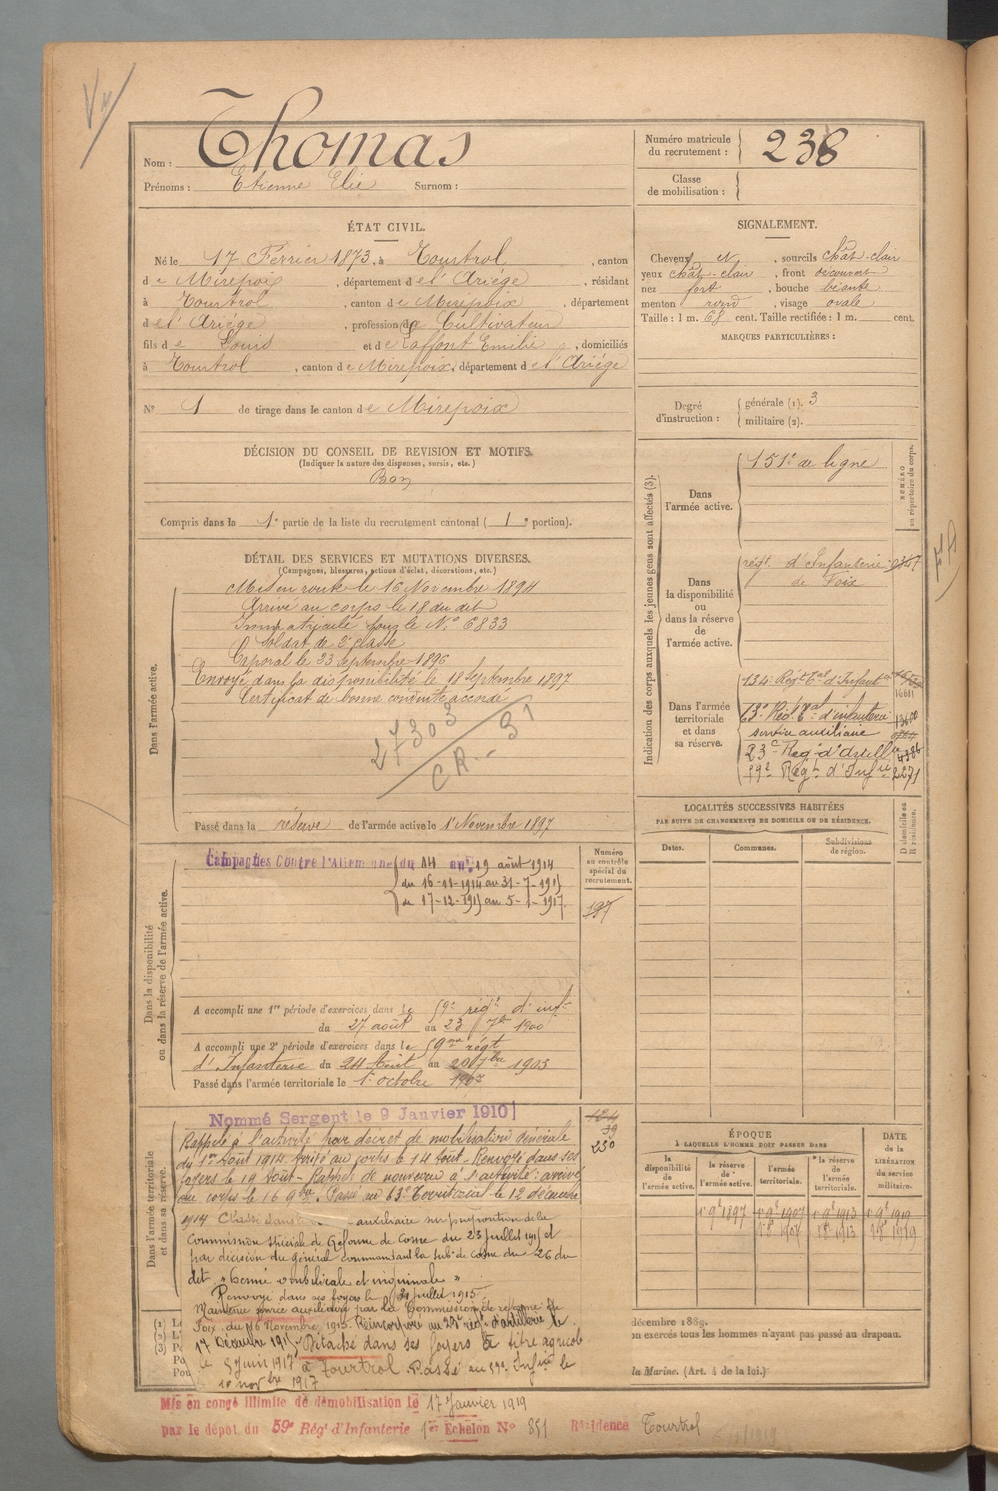 Nom : Thomas
Prénoms : Etienne Elie Surnom :
Numéro matricule du recrutement : 238
Classe de mobilisation :
ÉTAT CIVIL.
Né le 17 Février 1873, à Tourtrol, canton
de Mirepoix, département de l'Ariége, résidant
à Tourtrol, canton de Mirepoix, département
de l'Ariége, profession de Cultivateur
fils de Louis et de Laffont Emilie, domiciliés
à Tourtrol, canton de Mirepoix, département de l'Ariége
N° 1 de tirage dans le canton de Mirepoix
SIGNALEMENT.
Cheveux N, sourcils chât-clair
yeux chât-clair, front découvert
nez fort, bouche béante
menton rond, visage ovale
Taille : 1 m. 68 cent. Taille rectifiée : 1 m. cent.
MARQUES PARTICULIÈRES :
Degré d'instruction : générale (1). 3
militaire (2).
DÉCISION DU CONSEIL DE REVISION ET MOTIFS.
(Indiquer la nature des dispenses, sursis, etc.)
Bon
Compris dans la 1e partie de la liste du recrutement cantonal (1e portion).
DÉTAIL DES SERVICES ET MUTATIONS DIVERSES.
(Campagnes, blessures, actions d'éclat, décorations, etc.)
Dans l'armée active.
Mis en route le 16 Novembre 1894
Arrivé au corps le 18 du dit
Immatriculé sous le N° 6833
Soldat de 2e classe
Caporal le 23 septembre 1896
Envoyé dans la disponibilité le 18 Septembre 1897
Certificat de bonne conduite accordé
27303
CR - 31
Passé dans la réserve de l'armée active le 1er Novembre 1897
Indication des corps auxquels les jeunes gens sont affectés (3).
NUMÉRO au répertoire du corps.
Dans l'armée active.
151e de ligne
Dans la disponibilité ou dans la réserve de l'armée active.
régt. d'Infanterie
de Foix
Dans l'armée territoriale et dans sa réserve.
134e Régt Tal d'Infanterie
16611
63e Rég. Tal d'infanterie
service auxiliaire
23e Reg. d'Artill
59e Régt d'Infie 2271
LOCALITÉS SUCCESSIVES HABITÉES
PAR SUITE DE CHANGEMENTS DE DOMICILE OU DE RÉSIDENCE.
Dates. Communes. Subdivisions de région. D domicile ou R résidence.
Dans la disponibilité ou dans la réserve de l'armée active.
Numéro au contrôle spécial du recrutement.
197
Campagnes Contre l'Allemagne du 14 au 19 août 1914
du 16-11-1914 au 31-7-1915
du 17-12-1915 au 5-1-1917.
A accompli une 1re période d'exercices dans le 59e régt d'inft
du 27 août au 23 7bre 1900
A accompli une 2e période d'exercices dans le 59me régt
d'Infanterie du 24 Août au 20 7bre 1903
Passé dans l'armée territoriale le 1er octobre 1907
Dans l'armée territoriale et dans sa réserve.
Nommé Sergent le 9 Janvier 1910
39
230
Rappelé à l'activité par décret de mobilisation générale
du 1er Août 1914. Arrivé au corps le 14 Août. Renvoyé dans ses
foyers le 19 Août. Rappelé de nouveau à l'activité : arrivé
au corps le 16 9bre. Passé au 63e Territorial le 12 décembre
1914 Classé dans le auxiliaire sur proposition de la
Commission spéciale de Réforme de Cosne du 23 juillet 1915 et
par décision du général commandant la subd. de Cosne du 26 du
dit. "hernie ombilicale et inguinale"
Renvoyé dans ses foyers le 31 juillet 1915
Maintenu service auxiliaire par la Commission de réforme de
Foix du 16 Novembre 1915. Réincorporé au 23e régt d'artillerie le
17 Décembre 1915. Détaché dans ses foyers à titre agricole
le 5 Juin 1917 à Tourtrol. Passé au 59e Infrie le
10 novbre 1917
ÉPOQUE
À LAQUELLE L'HOMME DOIT PASSER DANS
DATE de la LIBÉRATION du service militaire.
la disponibilité de l'armée active. la réserve de l'armée active. l'armée territoriale. la réserve de l'armée territoriale.
1er 9bre 1897 1er 9bre 1907 1er 9bre 1913 1er 9bre 1919
décembre 1889.
on exercés tous les hommes n'ayant pas passé au drapeau.
la Marine. (Art. 4 de la loi.)
Mis en congé illimité de démobilisation le 17 Janvier 1919
par le dépot du 59e Régt d'Infanterie 1er Echelon N° 851 Résidence Tourtrol